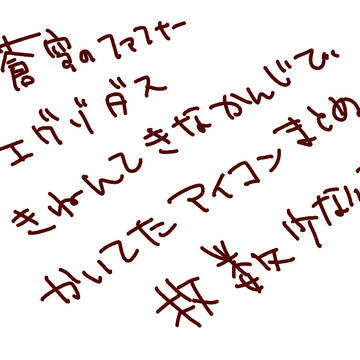 蒼穹のファフナー
エグゾダス
きねんてきなかんじで
かいてたアイコンまとめ
枚数少ない